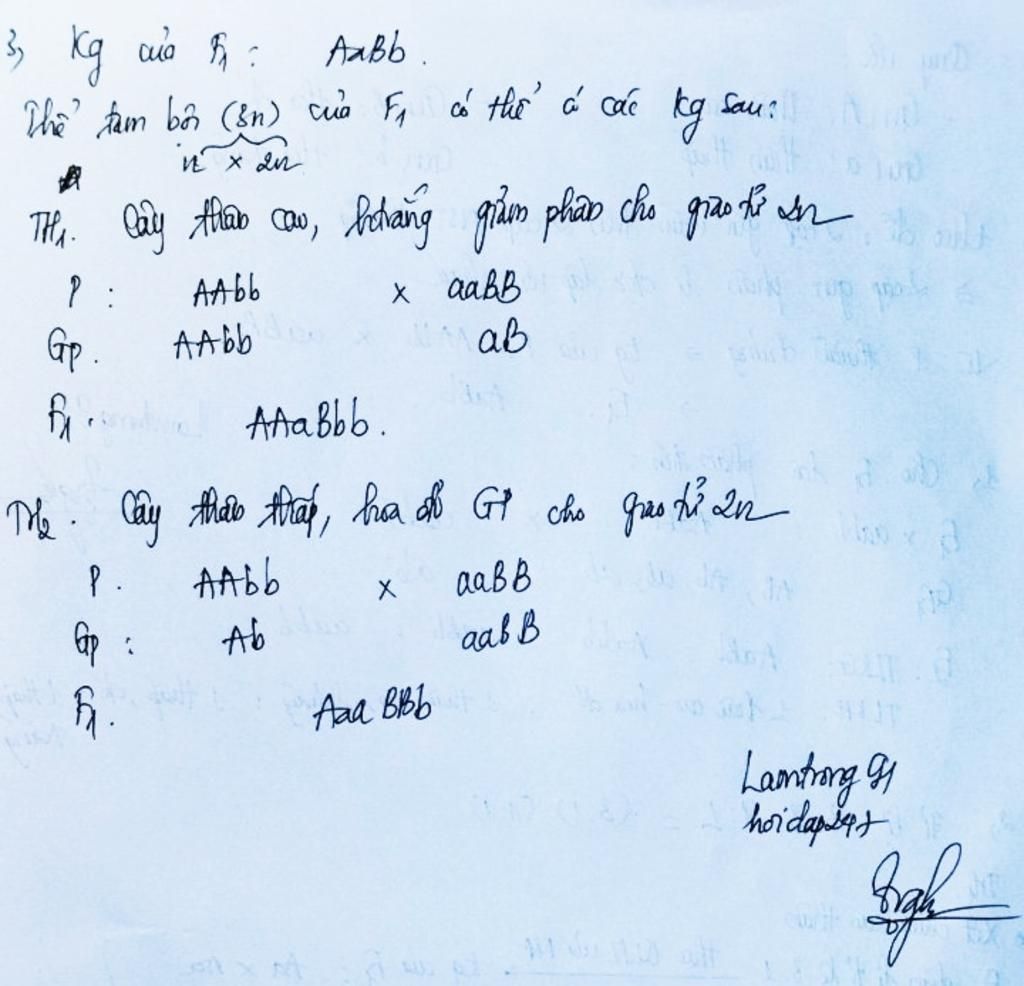 3, Kg của F1 : AaBb.
Thể tam bội (3n) của F1 có thể có các kg sau:
n x 2n
TH1. Cây thân cao, h.trắng giảm phân cho giao tử 2n
P : AAbb x aaBB
Gp. AAbb aB
F1. AAaBbb.
TH2. Cây thân thấp, hoa đỏ GP cho giao tử 2n
P. AAbb x aaBB
Gp : Ab aaBB
F1. AaaBBb
Lamtrong91
hoidap247